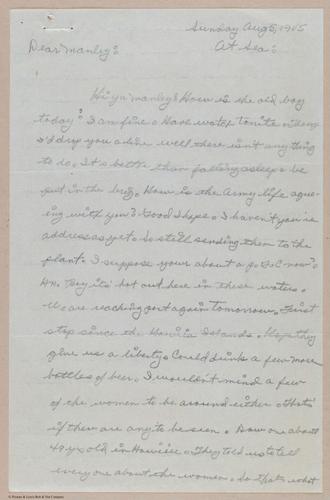 Sunday Aug 5, 1945
At Sea:
Dear Manley:
Hiya Manley? How is the old boy
today? I am fine. Have watch tonite
I'd drop you a line well there isn't anything
to do. It's better than falling asleep & be
put in the brig. How is the Army life agre-
ing with you? Good I hope. I haven't you're
address as yet. So still sending them to the
plant. I suppose your about a P.F.C now?
Boy it's hot out here in these waters.
We are reaching port again tomorrow. First
stop since the Islands. Hope they
give us a liberty. Could drink a few more
bottles of beer. I wouldn't mind a few
of the women to be around either. That's
if there are any to be seen. How one about
49 yrs old in They told us to tell
everyone about the women. So that's what